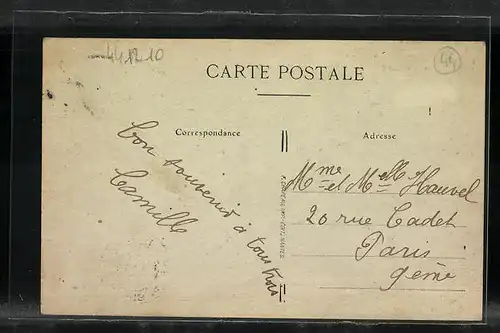 44 12 10
44
CARTE POSTALE
Correspondance
Adresse
bon souvenir à tous trois
Camille
Mme et Melle Hauvel
20 rue Cadet
Paris
9ème